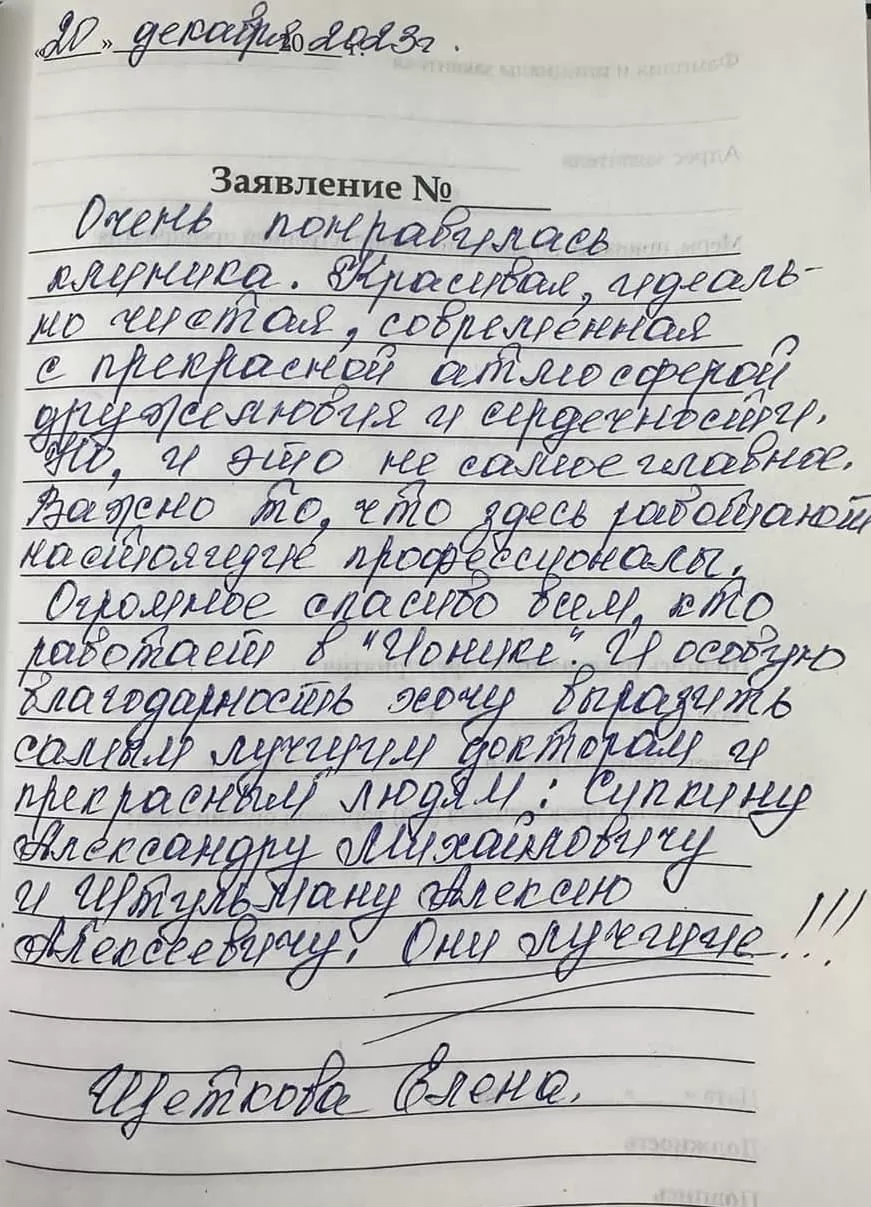 «20» декабря 20 2023 г.
Заявление №
Очень понравилась
клиника. Красивая, идеаль-
но чистая, современная
с прекрасной атмосферой
дружелюбия и сердечности.
Но, и это не самое главное.
Важно то, что здесь работают
настоящие профессионалы.
Огромное спасибо всем, кто
работает в "Ионике". И особую
благодарность хочу выразить
самым лучшим докторам и
прекрасным людям: Супкину
Александру Михайловичу
и Штульману Алексею
Алексеевичу. Они лучшие!!!
Щеткова Елена.
Фамилия и инициалы заявителя
Адрес заявителя
Дата « »
Должность
Подпись